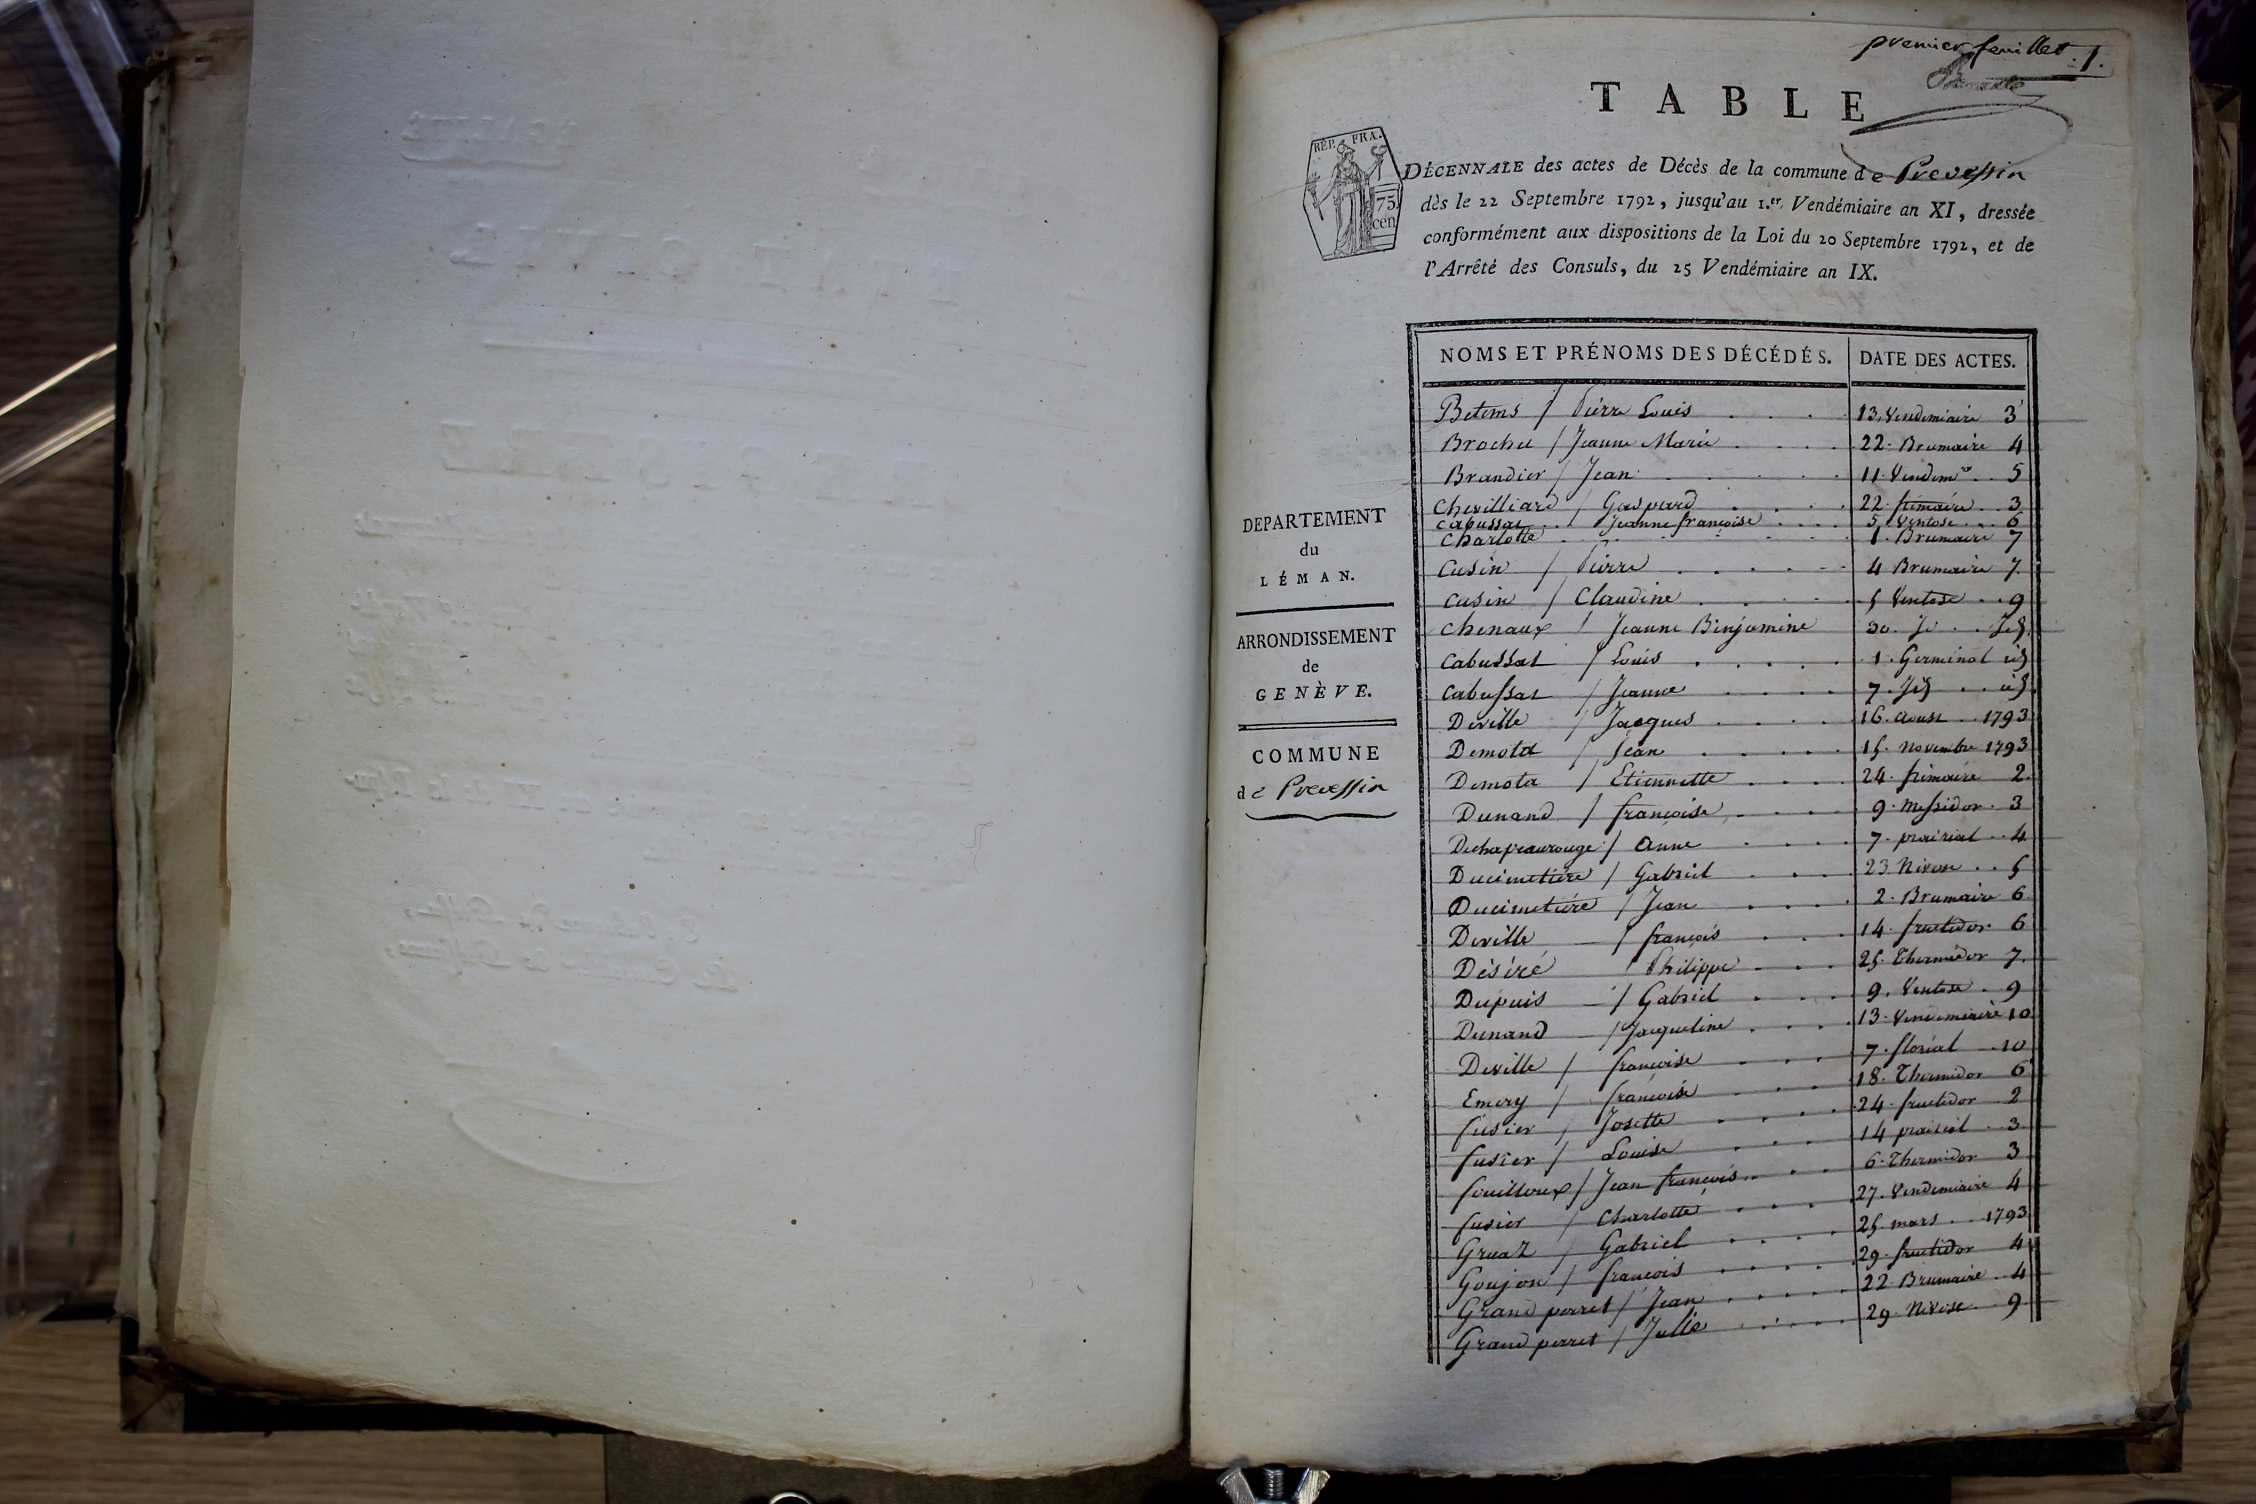 premier feuillet .1.
TABLE
RÉP. FRA.
75
cen
DÉCENNALE des actes de Décès de la commune de Prevessin
dès le 22 Septembre 1792, jusqu'au 1.er Vendémiaire an XI, dressée
conformément aux dispositions de la Loi du 20 Septembre 1792, et de
l'Arrêté des Consuls, du 25 Vendémiaire an IX.
DEPARTEMENT
du
LÉMAN.
ARRONDISSEMENT
de
GENÈVE.
COMMUNE
de Prevessin
NOMS ET PRÉNOMS DES DÉCÉDÉS. DATE DES ACTES.
Betems / Pierre Louis 13. Vendemiaire 3
Brochu / Jeanne Marie 22. Brumaire 4
Brandier / Jean 11. Vendemre 5
Chevilliard / Gaspard 22. frimaire 3
Cabussat Jeanne françoise 5. Ventose 6
Charlotte 1. Brumaire 7
Cusin / Pierre 4 Brumaire 7.
Cusin / Claudine 5 Ventose 9
Chenaux / Jeanne Binjamine 30.
Cabussat / Louis 1. Germinal
Cabussat / Jeanne 7.
Deville / Jacques 16. Aoust 1793
Demota / Jean 15. Novembre 1793
Demota / Etiennette 24. frimaire 2.
Dunand / françoise 9. Messidor 3
Dechapeaurouge / Anne 7. prairial 4
Ducimetiére / Gabriel 23 Nivose 5
Ducimetiére / Jean 2. Brumaire 6
Deville / françois 14. fructidor 6
Désiré / Philippe 25. Thermidor 7.
Dupuis / Gabriel 9. Ventose 9
Dunand / Jacqueline 13. Vendemiaire 10
Deville / françoise 7. floréal 10
Emery / françoise 18. Thermidor 6
fusier / Josette 24. fructidor 2
fusier / Louise 14 prairial 3
fouilloux / Jean françois 6. Thermidor 3
fusier / Charlotte 27. Vendemiaire 4
Gruaz / Gabriel 25. mars 1793
Goujon / françois 29. fructidor 4
Grand perret / Jean 22. Brumaire 4
Grand perret / Julie 29. Nivose 9